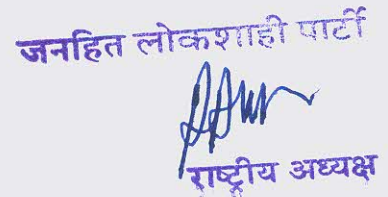 जनहित लोकशाही पार्टी
राष्ट्रीय अध्यक्ष